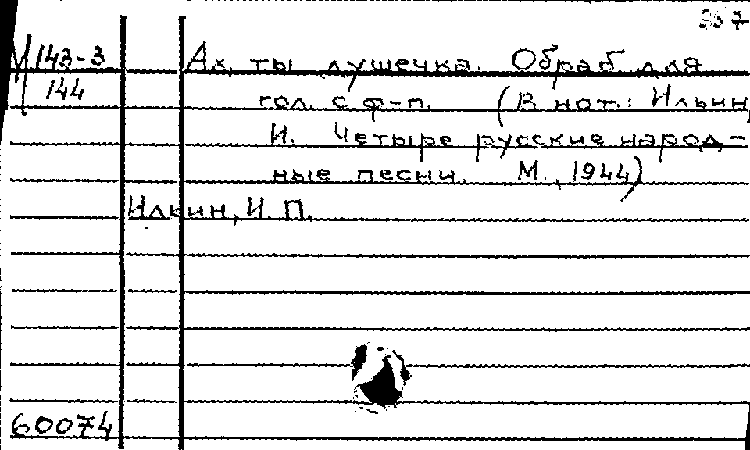 М 143-3
144
Ах, ты душечка. Обраб. для
гол. с ф-п. (В нот.: Ильин,
И. Четыре русские народ-
ные песни. М., 1944)
Ильин, И. П.
60074